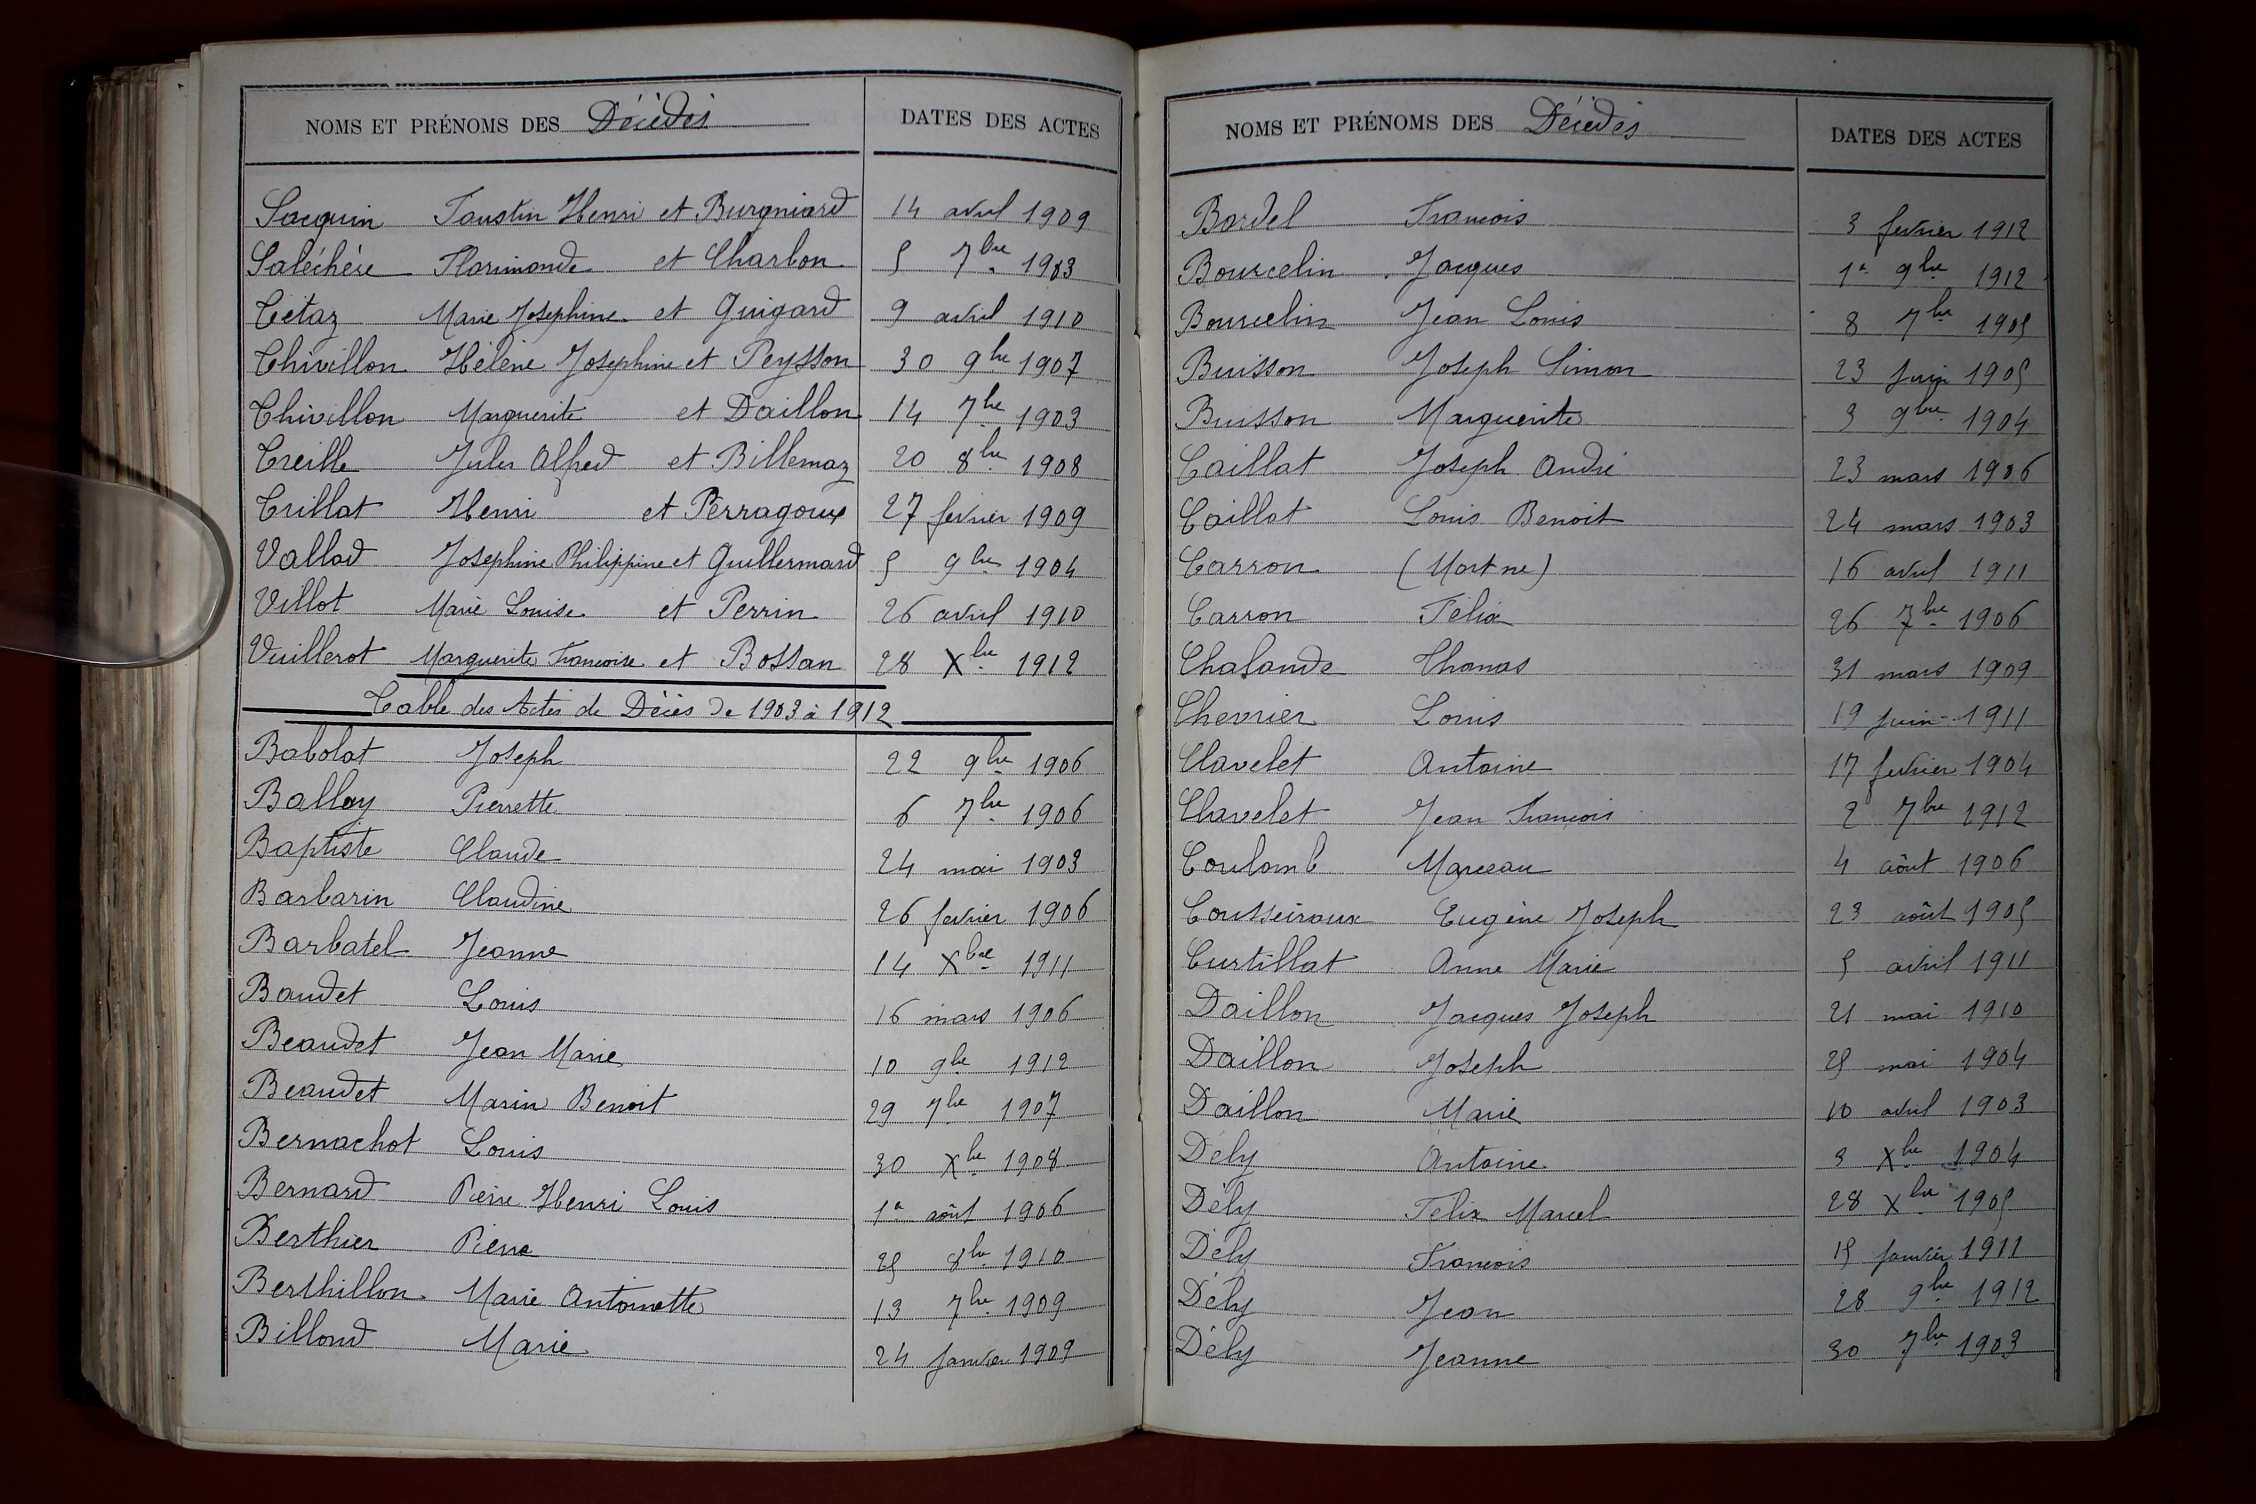 NOMS ET PRÉNOMS DES Décédés DATES DES ACTES
Sacquin Faustin Henri et Burgniard 14 avril 1909
Saléchère Florimonde et Charbon 5 7bre 1903
Tétaz Marie Josephine et Guigard 9 avril 1910
Thivillon Hélène Josephine et Peysson 30 9bre 1907
Thivillon Marguerite et Daillon 14 7bre 1903
Treille Jules Alfred et Billemaz 20 8bre 1908
Trillat Henri et Perragoux 27 fevrier 1909
Vallod Josephine Philippine et Guillermard 5 9bre 1904
Villot Marie Louise et Perrin 26 avril 1910
Vuillerot Marguerite Francoise et Bossan 28 Xbre 1912
Table des Actes de Décès de 1903 à 1912
Babolat Joseph 22 9bre 1906
Ballay Pierrette 6 7bre 1906
Baptiste Claude 24 mai 1903
Barbarin Claudine 26 fevrier 1906
Barbatel Jeanne 14 Xbre 1911
Baudet Louis 16 mars 1906
Beaudet Jean Marie 10 9bre 1912
Beaudet Marin Benoit 29 7bre 1907
Bernachot Louis 30 Xbre 1908
Bernard Pierre Henri Louis 1er août 1906
Berthier Pierre 25 8bre 1910
Berthillon Marie Antoinette 13 7bre 1909
Billoud Marie 24 janvier 1909
NOMS ET PRÉNOMS DES Décédés DATES DES ACTES
Bardel Francois 3 fevrier 1912
Bourcelin Jacques 1er 9bre 1912
Bourcelin Jean Louis 8 7bre 1905
Buisson Joseph Simon 23 juin 1905
Buisson Marguerite 3 9bre 1904
Caillat Joseph André 23 mars 1906
Caillat Louis Benoit 24 mars 1903
Carron (Mort né) 16 avril 1911
Carron Félix 26 7bre 1906
Chalande Thomas 31 mars 1909
Chevrier Louis 19 juin 1911
Clavelet Antoine 17 fevrier 1904
Clavelet Jean Francois 2 7bre 1912
Coulomb Marceau 4 août 1906
Cousseiroux Eugène Joseph 23 août 1905
Curtillat Anne Marie 5 avril 1911
Daillon Jacques Joseph 21 mai 1910
Daillon Joseph 25 mai 1904
Daillon Marie 10 avril 1903
Dély Antoine 3 Xbre 1904
Dély Felix Marcel 28 Xbre 1905
Dély Francois 15 janvier 1911
Dély Jean 28 9bre 1912
Dély Jeanne 30 7bre 1903